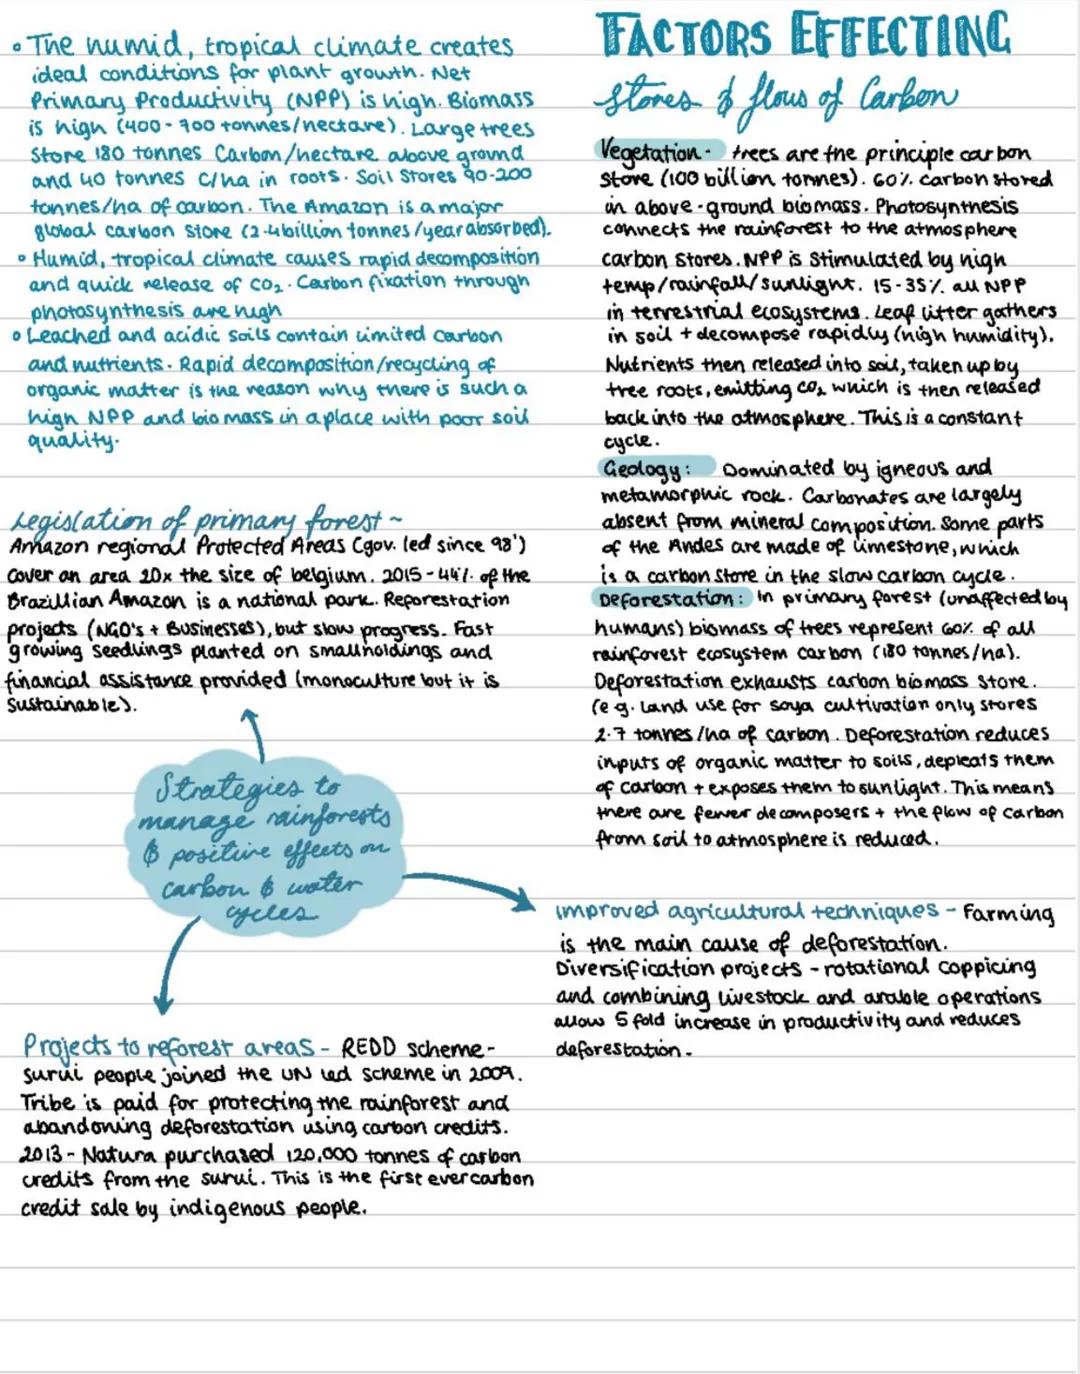 • The humid, tropical climate creates
ideal conditions for plant growth. Net
Primary Productivity (NPP) is high. Biomass
is high (400-700 tonnes/hectare). Large trees
store 180 tonnes Carbon/hectare above ground
and 40 tonnes C/ha in roots. Soil Stores 90-200
tonnes/ha of carbon. The Amazon is a major
global carbon store (2.4billion tonnes/year absorbed).
• Humid, tropical climate causes rapid decomposition
and quick release of CO₂. Carbon fixation through
photosynthesis are high
• Leached and acidic soils contain limited carbon
and nutrients. Rapid decomposition/recycling of
organic matter is the reason why there is such a
high NPP and biomass in a place with poor soil
quality.
Legislation of primary forest ~
Amazon regional Protected Areas (gov. led since 98')
cover an area 20x the size of belgium. 2015-44% of the
Brazillian Amazon is a national park. Reforestation
projects (NGO's + Businesses), but slow progress. Fast
growing seedlings planted on smallholdings and
financial assistance provided (monoculture but it is
sustainable).
Strategies to
manage rainforests
& positive effects on
carbon & water
cycles
Projects to reforest areas - REDD scheme-
surui people joined the UN led scheme in 2009.
Tribe is paid for protecting the rainforest and
abandoning deforestation using carbon credits.
2013 - Natura purchased 120,000 tonnes of carbon
credits from the surui. This is the first ever carbon
credit sale by indigenous people.
FACTORS EFFECTING
stores & flows of Carbon
Vegetation - trees are the principle carbon
store (100 billion tonnes). 60% carbon stored
in above-ground biomass. Photosynthesis
connects the rainforest to the atmosphere
carbon stores. NPP is stimulated by high
temp/rainfall/sunlight. 15-35% all NPP
in terrestrial ecosystems. Leaf litter gathers
in soil + decompose rapidly (high humidity).
Nutrients then released into soil, taken up by
tree roots, emitting CO₂ which is then released
back into the atmosphere. This is a constant
cycle.
Geology: Dominated by igneous and
metamorphic rock. Carbonates are largely
absent from mineral composition. Some parts
of the Andes are made of limestone, which
is a carbon store in the slow carbon cycle.
Deforestation: In primary forest (unaffected by
humans) biomass of trees represent 60% of all
rainforest ecosystem carbon (180 tonnes/ha).
Deforestation exhausts carbon biomass store.
(e.g. land use for soya cultivation only stores
2.7 tonnes/ha of carbon. Deforestation reduces
inputs of organic matter to soils, depleats them
of carbon + exposes them to sunlight. This means
there are fewer decomposers + the flow of carbon
from soil to atmosphere is reduced.
Improved agricultural techniques - Farming
is the main cause of deforestation.
Diversification projects - rotational coppicing
and combining livestock and arable operations
allow 5 fold increase in productivity and reduces
deforestation.